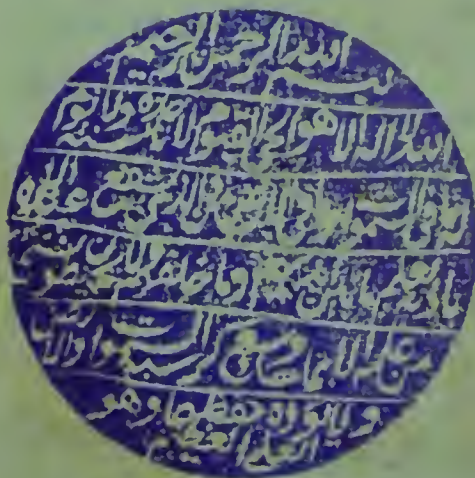 بسم الله الرحمن الرحيم
الله لا اله الا هو الحي القيوم لا تاخذه سنة ولا نوم
له ما في السموات وما في الارض من ذا الذي يشفع عنده الا
باذنه يعلم ما بين ايديهم وما خلفهم ولا يحيطون بشيء
من علمه الا بما شاء وسع كرسيه السموات والارض
ولا يؤده حفظهما وهو
العلي العظيم